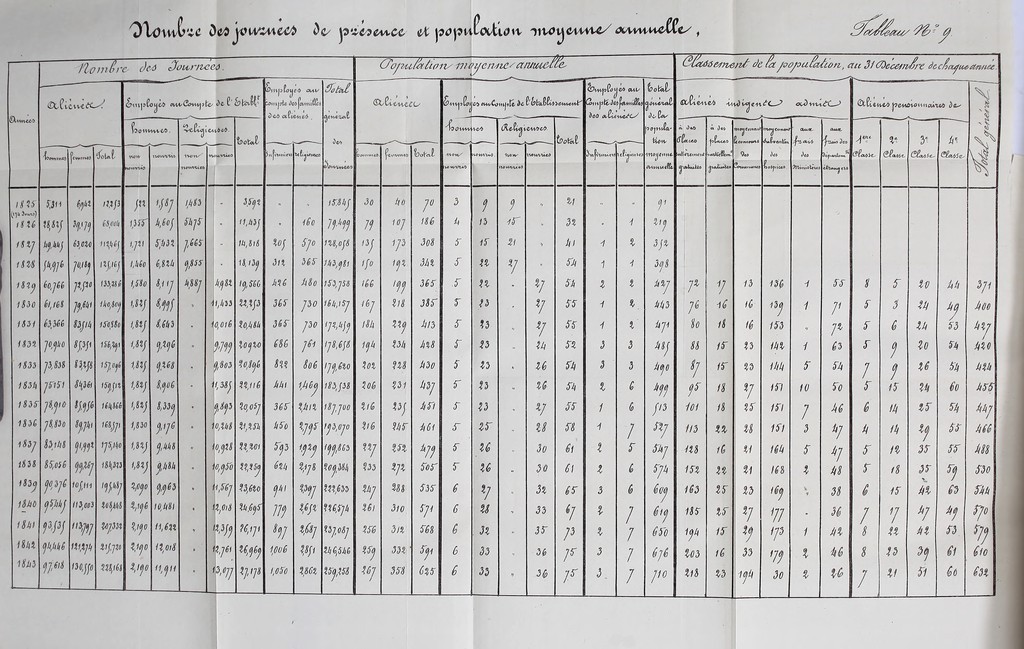 Nombre des journées de présence et population moyenne annuelle,
Tableau N° 9.
Nombre des Journées. Population moyenne annuelle Classement de la population, au 31 Décembre de chaque année.
Années Aliénés Employés au Compte de l'Etablt. Employés au compte des familles des aliénés. Total général des Journées Aliénés Employés au compte de l'Etablissement Employés au Compte des familles des aliénés Total général de la population moyenne annuelle Aliénés indigens admis Aliénés pensionnaires de Total général
hommes femmes Total hommes. Religieuses. Total hommes femmes Total hommes Religieuses Total 1ère Classe 2e Classe 3e Classe 4e Classe
non nourris nourris non nourries nourries non nourris nourris non nourries nourries
1825 5,311 6,942 12,253 522 1,587 1,483 . 3592 15,845 30 40 70 3 9 9 . 21 91
1826 28,825 39,179 68,004 1355 4,605 5475 . 11,435 . 160 79,499 79 107 186 4 13 15 . 32 . 1 219
1827 49,445 63,020 112,465 1,721 5,432 7,665 . 14,818 205 570 128,058 135 173 308 5 15 21 . 41 1 2 352
1828 54,976 70,189 125,165 1,460 6,824 9,855 . 18,139 312 365 143,981 150 192 342 5 22 27 . 54 1 1 398
1829 60,766 72,520 133,286 1,580 8,117 4,887 4,982 19,566 426 480 153,758 166 199 365 5 22 . 27 54 2 2 427 72 17 13 136 1 55 8 5 20 44 371
1830 61,168 79,641 140,809 1,825 8,995 . 11,433 22,253 365 730 164,157 167 218 385 5 23 . 27 55 1 2 443 76 16 16 139 1 71 5 3 24 49 400
1831 63,366 83,514 150,880 1,825 8,643 . 10,016 20,484 365 730 172,459 184 229 413 5 23 27 55 1 2 471 80 18 16 153 . 72 5 6 24 53 427
1832 70,940 85,351 156,291 1,825 9,296 . 9,799 20,920 686 761 178,658 194 234 428 5 23 24 52 3 2 485 88 15 23 142 1 63 5 9 20 54 420
1833 73,838 83,258 157,096 1,825 9,268 . 9,803 20,896 822 806 179,620 202 228 430 5 23 26 54 3 3 490 87 15 23 144 5 54 7 9 26 54 424
1834 75,151 84,361 159,512 1,825 8,906 . 11,385 22,116 441 1,469 183,538 206 231 437 5 23 . 26 54 2 6 499 95 18 27 151 10 50 5 15 24 60 455
1835 78,910 85,956 164,866 1,825 8,339 . 9,893 20,057 365 2,412 187,700 216 235 451 5 23 27 55 1 6 513 101 18 25 151 7 46 6 14 25 54 447
1836 78,830 89,741 168,571 1,830 9,176 . 10,248 21,254 450 2795 193,070 216 245 461 5 25 . 28 58 1 7 527 113 22 28 151 3 47 4 14 29 55 466
1837 83,148 91,992 175,140 1,825 9,448 . 10,928 22,201 593 1929 199,863 227 252 479 5 26 30 61 2 5 547 128 16 21 164 5 47 5 12 35 55 488
1838 85,056 99,267 184,323 1,825 9,484 . 10,950 22,259 624 2,178 209,384 233 272 505 5 26 30 61 2 6 574 152 22 21 168 2 48 5 18 35 59 530
1839 90,376 105,111 195,487 2,090 9,963 . 11,567 23,620 941 2397 222,633 247 288 535 6 27 32 65 3 6 609 163 25 23 169 . 38 6 15 42 63 544
1840 95,445 113,003 208,448 2,196 10,481 . 12,018 24,695 779 2652 226,574 261 310 571 6 28 33 67 2 7 619 185 25 27 177 . 36 7 17 47 49 570
1841 93,535 113,797 207,332 2,190 11,622 . 12,359 26,171 897 2,687 237,087 256 312 568 6 32 35 73 2 7 650 194 15 29 173 1 42 8 22 42 53 579
1842 94,446 121,274 215,720 2,190 12,018 . 12,761 26,969 1006 2851 246,546 259 332 591 6 33 36 75 3 7 676 203 16 33 179 2 46 8 23 39 61 610
1843 97,618 130,550 228,168 2,190 11,911 . 13,077 27,178 1,050 2862 259,258 267 358 625 6 33 . 36 75 3 7 710 218 23 194 30 2 26 7 21 51 60 632